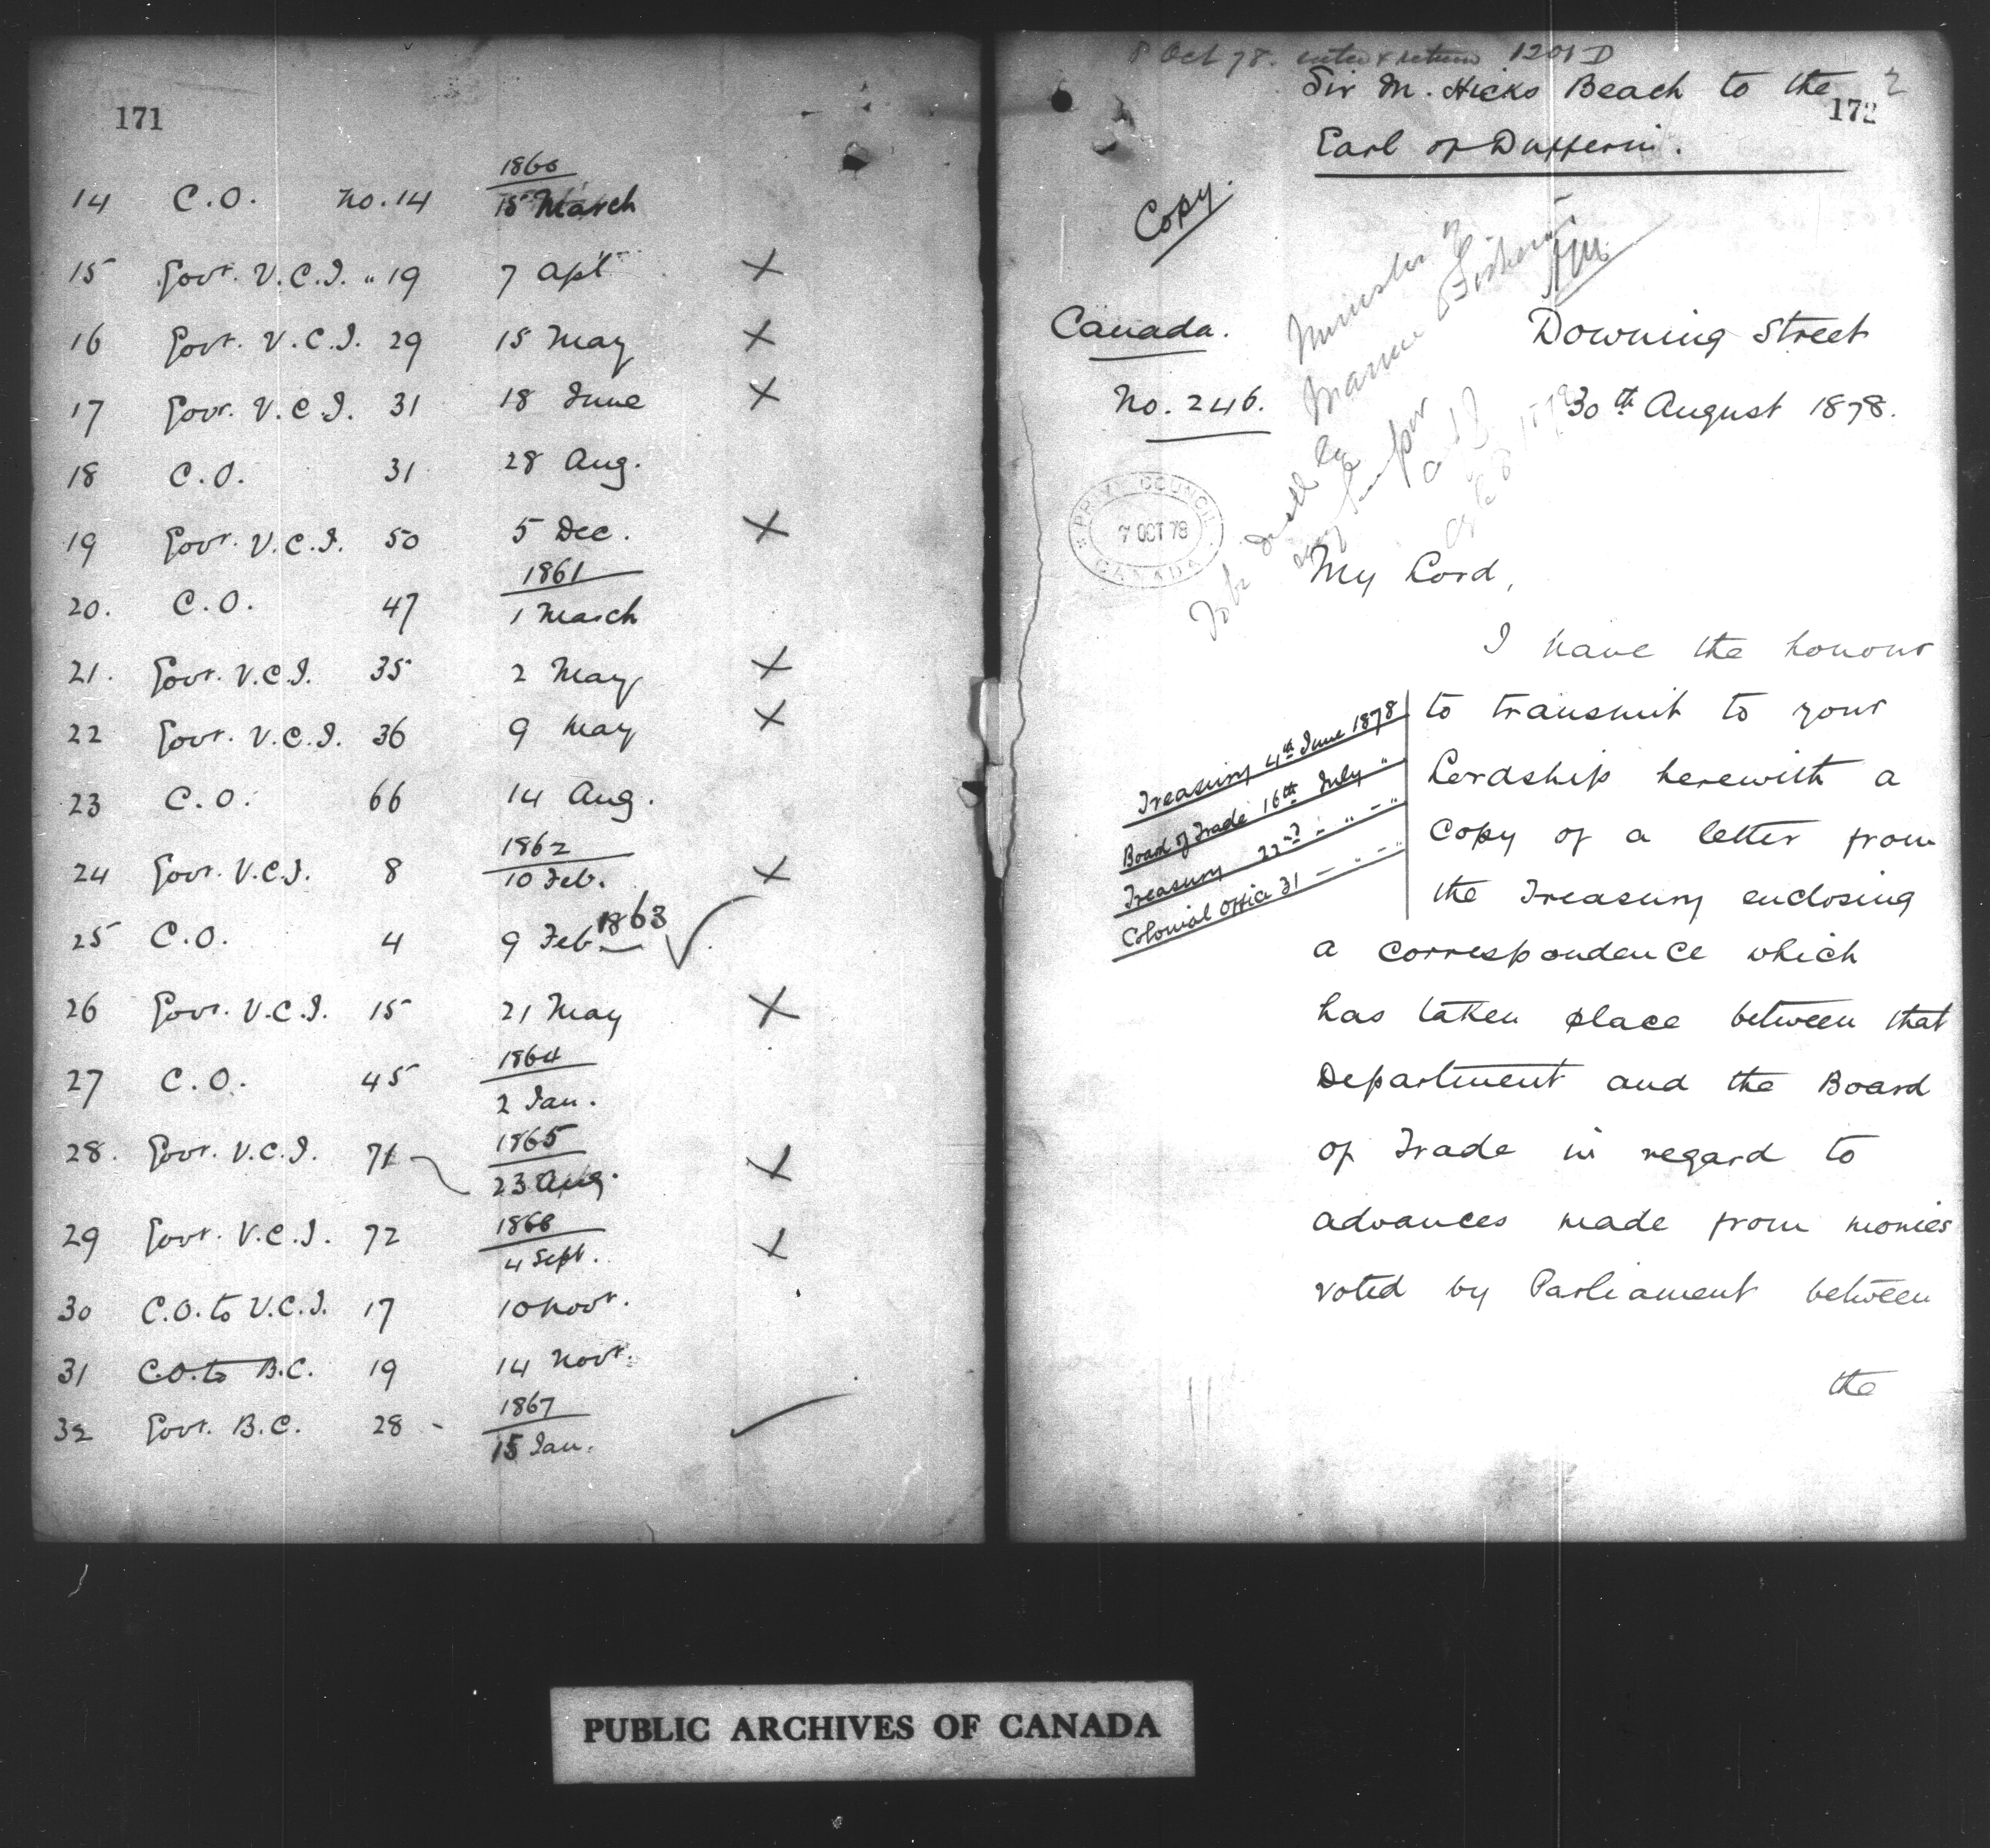 171
1860
14 C.O. No. 14 15 March
15 Govr. V.C.I. " 19 7 Apl X
16 Govr. V.C.I. 29 15 May X
17 Govr. V.C.I. 31 18 June X
18 C.O. 31 28 Aug.
19 Govr. V.C.I. 50 5 Dec. X
1861
20. C.O. 47 1 March
21. Govr. V.C.I. 35 2 May X
22 Govr. V.C.I. 36 9 May X
23 C.O. 66 14 Aug.
1862
24 Govr. V.C.I. 8 10 Feb. X
25 C.O. 4 9 Feb 1863 ✓
26 Govr. V.C.I. 15 21 May X
1864
27 C.O. 45 2 Jan.
1865
28. Govr. V.C.I. 71 23 Aug. X
1866
29 Govr. V.C.I. 72 4 Sept. X
30 C.O. to V.C.I. 17 10 Novr.
31 C.O. to B.C. 19 14 Novr.
1867
32 Govr. B.C. 28 - 15 Jan. ✓
8 Oct 78. 1201 D
Sir M. Hicks Beach to the 2
172
Earl of Dufferin.
Copy.
Minister of
Marine & Fisheries
Canada.
Downing Street
No. 246.
30th August 1878.
PRIVY COUNCIL
7 OCT 78
CANADA
My Lord,
I have the honour
to transmit to your
Lordship herewith a
copy of a letter from
the Treasury enclosing
Treasury 4th June 1878
Board of Trade 16th July "
Treasury 22nd - " - "
Colonial Office 31 - " - "
a correspondence which
has taken place between that
Department and the Board
of Trade in regard to
advances made from monies
voted by Parliament between
the
PUBLIC ARCHIVES OF CANADA